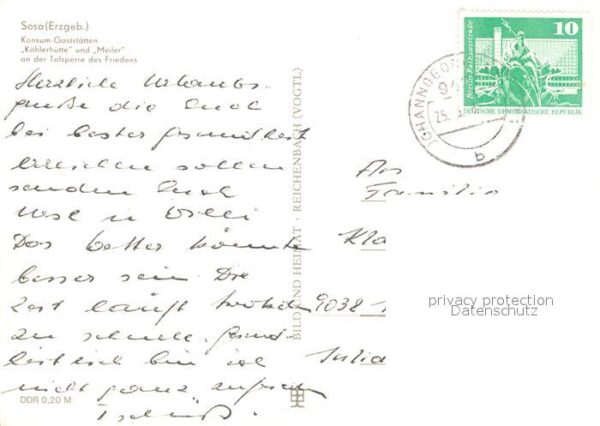 Sosa (Erzgeb.)
Konsum-Gaststätten
„Köhlerhütte" und „Meiler"
an der Talsperre des Friedens
Herzliche Urlaubs-
grüße die Euch
bei bester Gesundheit
erreichen sollen
senden Euch
u Willi
Das Wetter könnte
besser sein Die
Zeit läuft
zu schnell. Gesund-
heitlich bin ich
nicht ganz zufrieden
Tschüß.
DDR 0,20 M
BILD UND HEIMAT · REICHENBACH (VOGTL)
10
Berlin, Rathausstraße
DEUTSCHE DEMOKRATISCHE REPUBLIK
JOHANNGEORG
94
25.
b
An
Familie
Kla
9038
Julia
privacy protection
Datenschutz